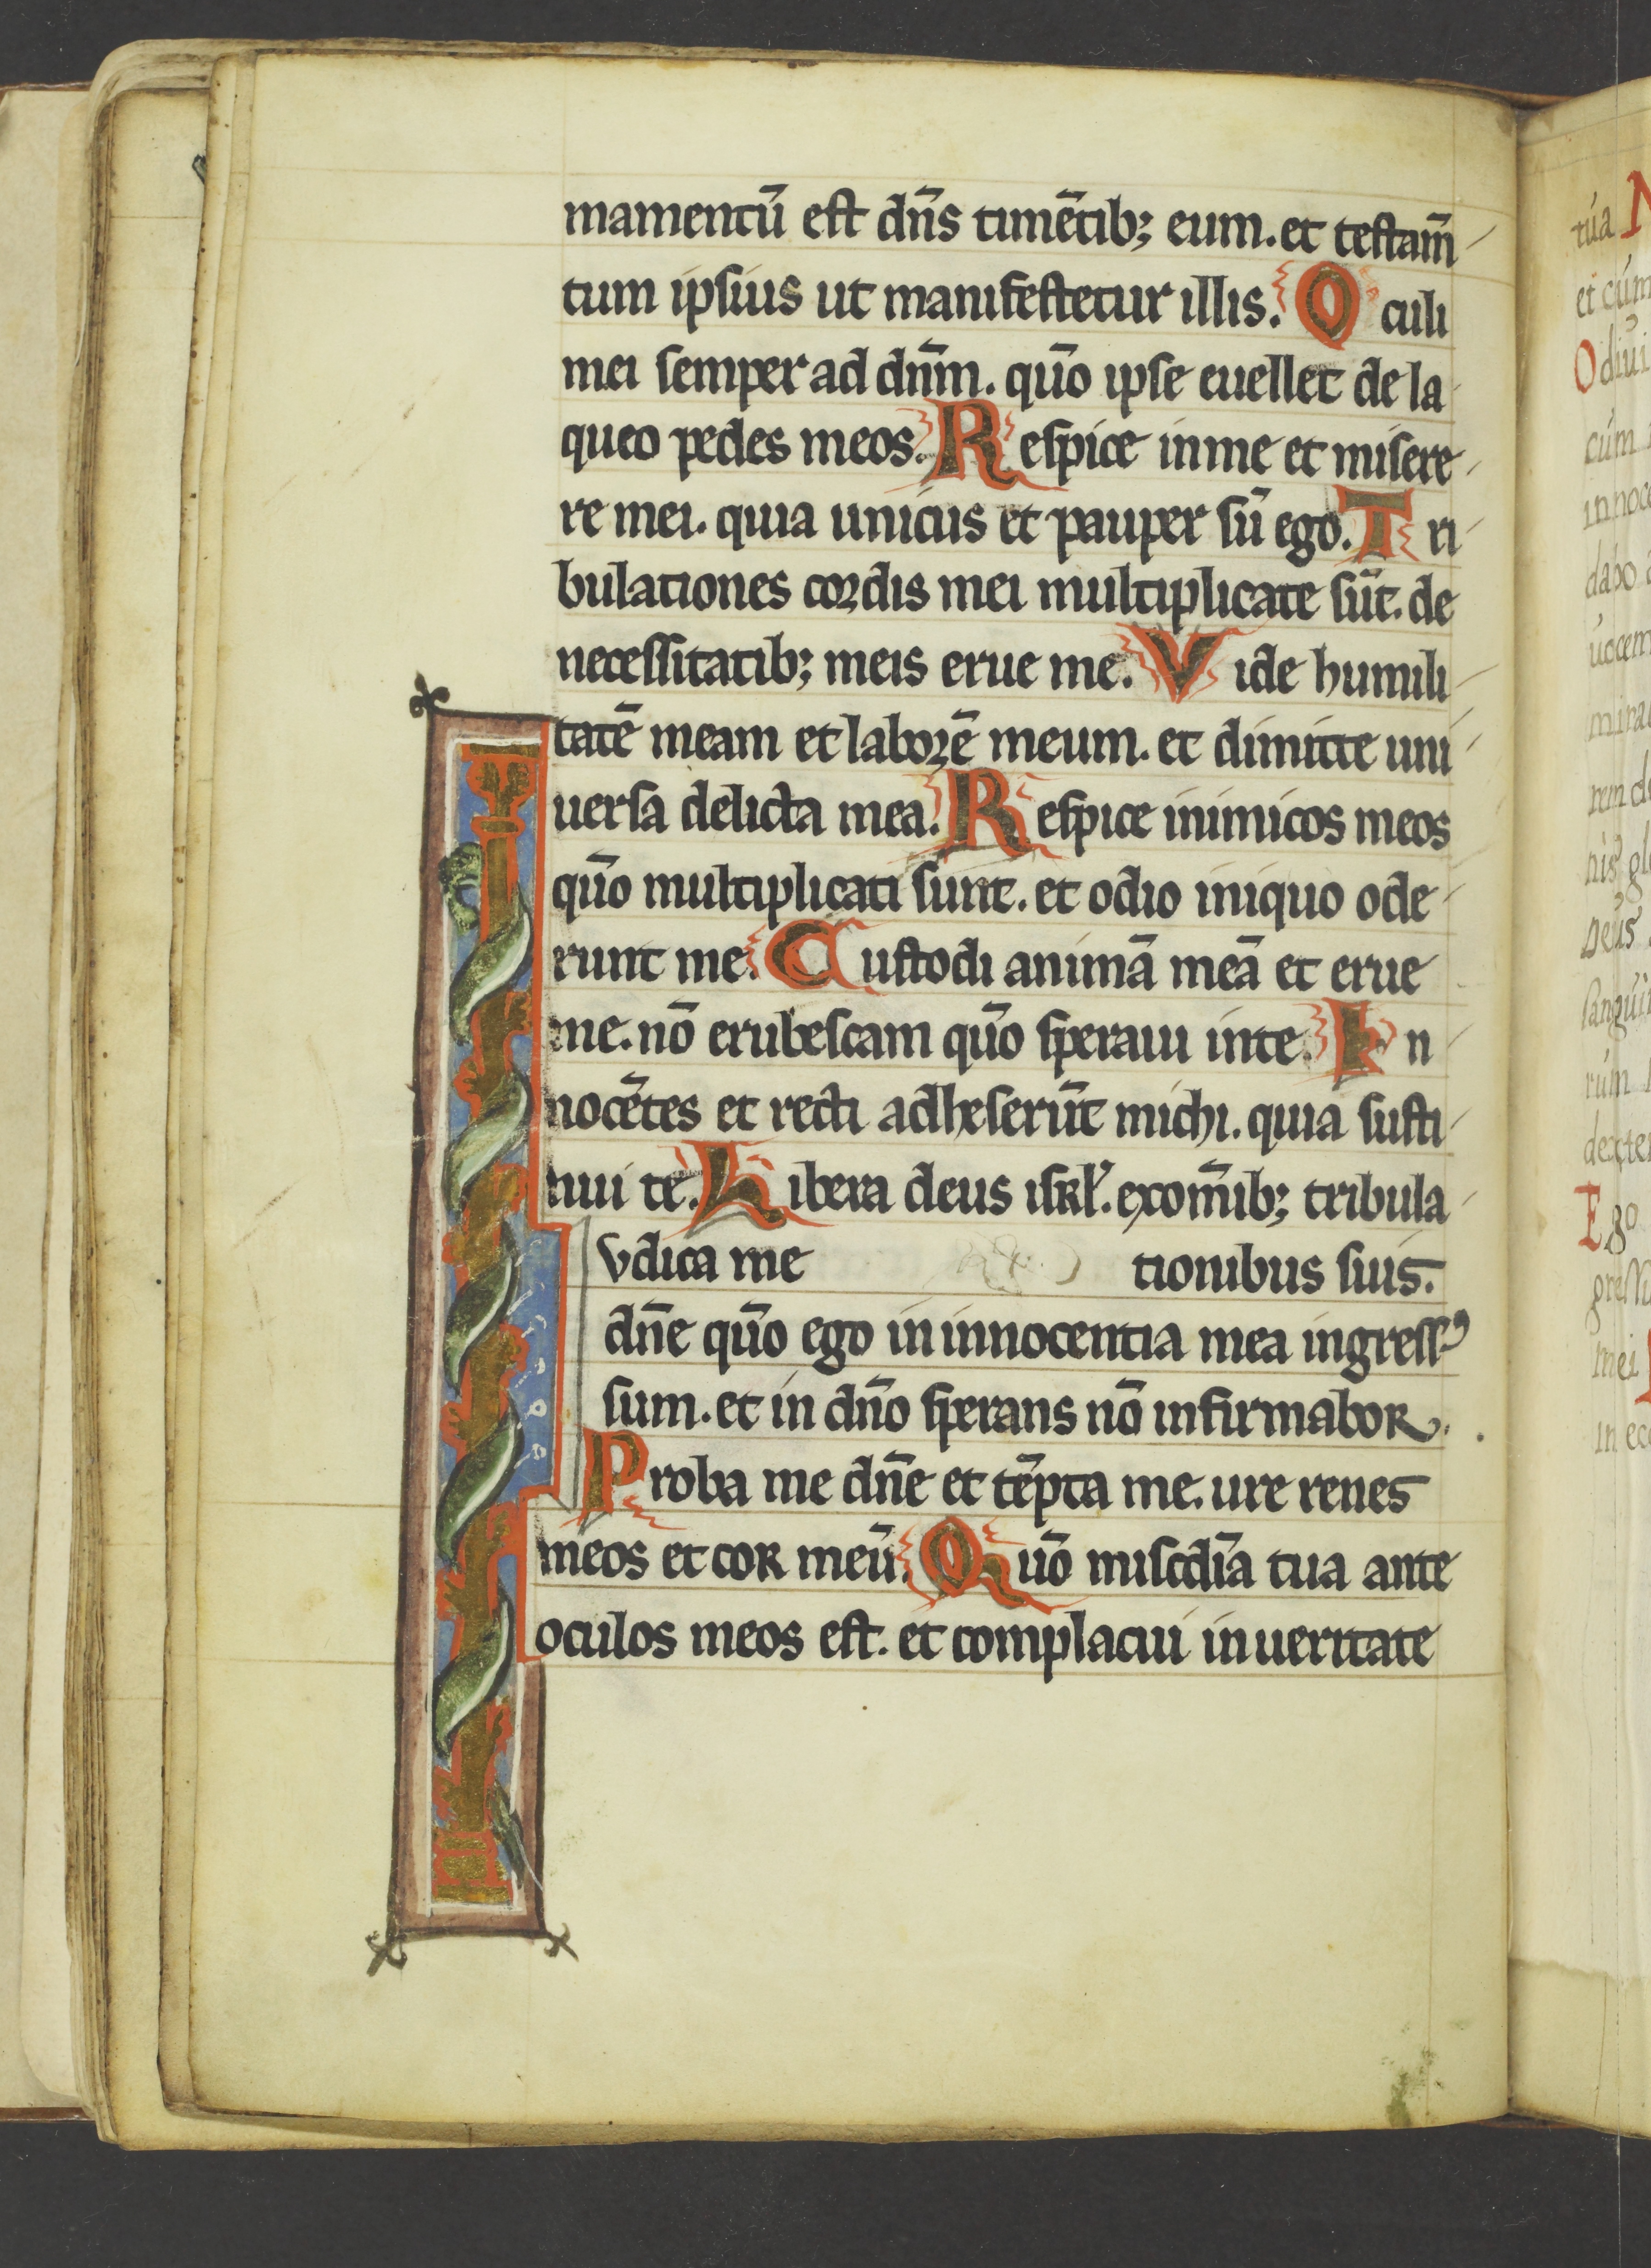 mamentū est dn̄s timētib; eum. et testam̄
tum ipsius ut manifestetur illis. Oculi
mei semper ad dn̄m. quō ipse euellet de la
queo pedes meos. Respice in me et misere
re mei. quia unicus et pauper sū ego. Tri
bulationes cordis mei multiplicate sūt. de
necessitatib; meis erue me. Vide humili
tatē meam et laborē meum. et dimitte uni
uersa delicta mea. Respice inimicos meos
quō multiplicati sunt. et odio iniquo ode
runt me. Custodi animā meā et erue
me. nō erubescam quō speraui in te. In
nocētes et recti adheserūt michi. quia susti
nui te. Libera deus isrl̛. ex om̄ib; tribula
tionibus suis.
Iudica me
dn̄e quō ego in innocentia mea ingress᾿
sum. et in dn̄o sperans nō infirmabor.
Proba me dn̄e et tēpta me. ure renes
meos et cor meū. Quō miscdīa tua ante
oculos meos est. et complacui in ueritate
tua
et cum
Odiui
cum
innoce
dabo
uocem
mira
rem de
nis gl
Deus
sangui
rum
dexte
Ego
gress
mei
in ecc